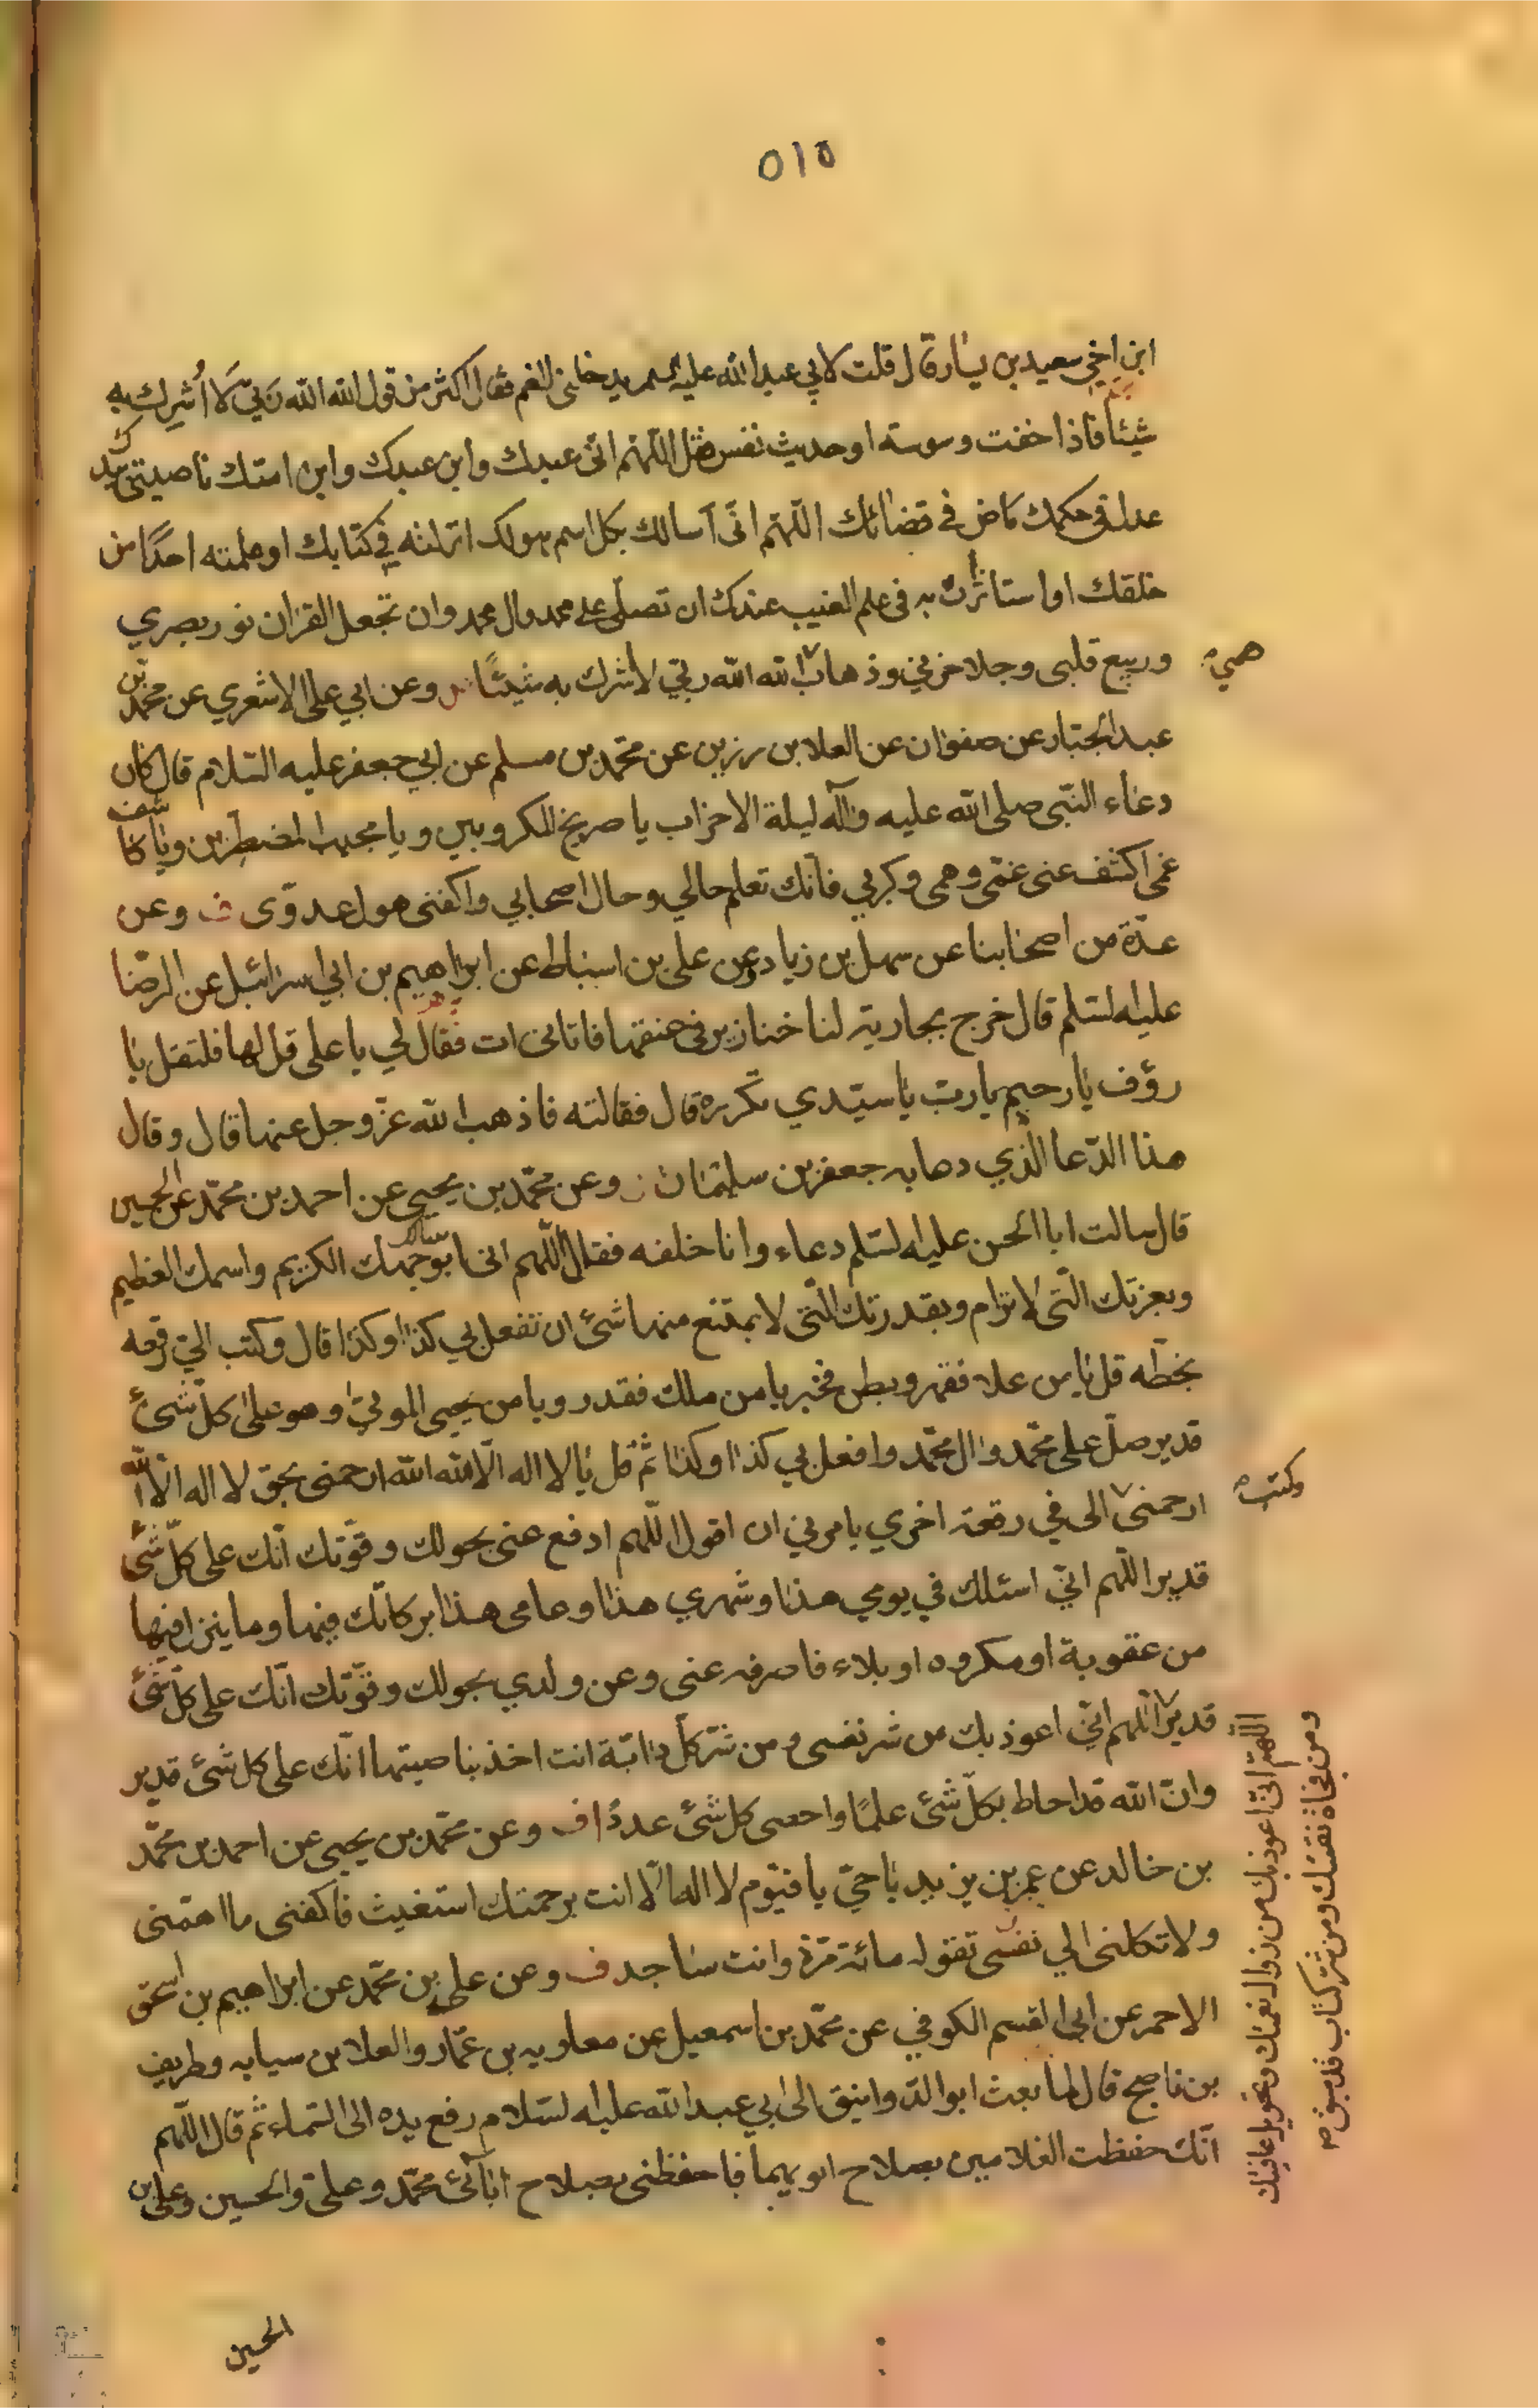 ٥١٥
ابن اخي سعيد بن يسار قال قلت لابي عبد الله عليه السلم يدخلني الغم فقال اكثر من قول الله الله ربي لا اشرك به
شيئا فاذا خفت وسوسة او حديث نفس فقل اللهم اني عبدك وابن عبدك وابن امتك ناصيتي بيدك
عدل في حكمك ماض في قضائك اللهم اني اسالك بكل اسم هو لك انزلته في كتابك او علمته احدا من
خلقك او استاثرت به في علم الغيب عندك ان تصلي على محمد وال محمد وان تجعل القران نور بصري
وربيع قلبي وجلا حزني وذهاب الله الله ربي لا اشرك به شيئا وعن ابي علي الاشعري عن محمد بن
همي
عبد الجبار عن صفوان عن العلا بن رزين عن محمد بن مسلم عن ابي جعفر عليه السلام قال كان
دعاء النبي صلى الله عليه واله ليلة الاحزاب يا صريخ المكروبين ويا مجيب المضطرين ويا كاشف
غمي اكشف عني غمي وهمي وكربي فانك تعلم حالي وحال اصحابي واكفني هول عدوي ف وعن
عدة من اصحابنا عن سهل بن زياد وعن علي بن اسباط عن ابراهيم بن ابي اسرائيل عن الرضا
عليه السلم قال خرج بجارية لنا خنازير في عنقها فاتاني ات فقال لي يا علي قل لها فلتقل يا
رؤف يا رحيم يا رب يا سيدي تكرره قال فقالته فاذهب الله عز وجل عنها قال وقال
هذا الدعا الذي دعا به جعفر بن سليمان وعن محمد بن يحيى عن احمد بن محمد عن الحسين
قال سالت ابا الحسن عليه السلم دعاء وانا خلفه فقال اللهم اني اسالك بوجهك الكريم واسمك العظيم
وبعزتك التي لا ترام وبقدرتك التي لا يمتنع منها شئ ان تفعل بي كذا وكذا قال وكتب الي رقعه
بخطه قل يا من علا فقهر وبطن فخبر يا من ملك فقدر ويا من يحيى الموتى وهو على كل شئ
قدير صل على محمد وال محمد وافعل بي كذا وكذا ثم قل يا لا اله الا الله الله ارحمني بحق لا اله الا الله
ارحمني الى في رقعة اخري يامرني ان اقول اللهم ادفع عني بحولك وقوتك انك على كل شئ
وكتب
قدير اللهم اني اسئلك في يومي هذا وشهري هذا وعامى هذا بركاتك فيها وما ينزل فيها
من عقوبة او مكروه او بلاء فاصرفه عني وعن ولدي بحولك وقوتك انك على كل شئ
قدير اللهم اني اعوذ بك من شر نفسي ومن شر كل دابة انت اخذ بناصيتها انك على كل شئ قدير
وان الله قد احاط بكل شئ علما واحصى كل شئ عددا ف وعن محمد بن يحيى عن احمد بن محمد
بن خالد عن عمر بن يزيد يا حي يا قيوم لا اله الا انت برحمتك استغيث فاكفني ما اهمني
ولا تكلني الي نفسي تقوله مائة مرة وانت ساجد ف وعن علي بن محمد عن ابراهيم بن اسحق
الاحمر عن ابي القسم الكوفي عن محمد بن اسمعيل عن معاوية بن عمار والعلا بن سيابه وظريف
بن ناصح قال لما بعث ابو الدوانيق الى ابي عبد الله عليه السلام رفع يده الى السماء ثم قال اللهم
انك حفظت الغلامين بصلاح ابويهما فاحفظني بصلاح ابائي محمد وعلي والحسين وعلي بن
اللهم اني اعوذ بك من زوال نعمتك وتحويل عافيتك
ومن فجاة نقمتك ومن شر كتاب قد سبق صح
الحسين